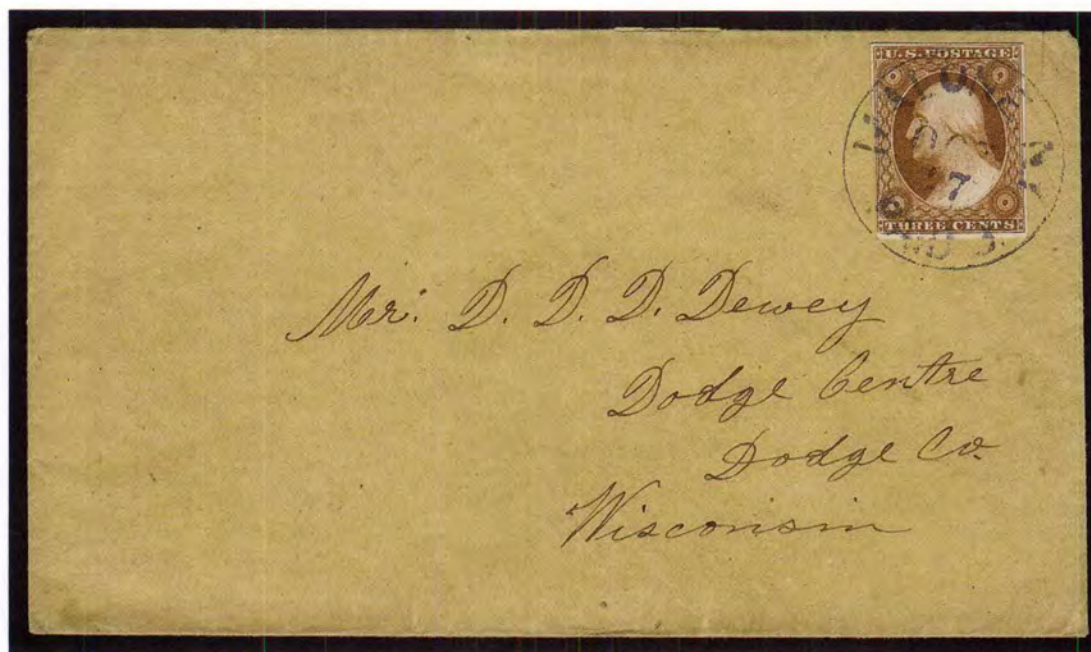 U.S. POSTAGE
MALONE N.Y.
7
THREE CENTS
Mr: D. D. D. Dewey
Dodge Centre
Dodge Co.
Wisconsin